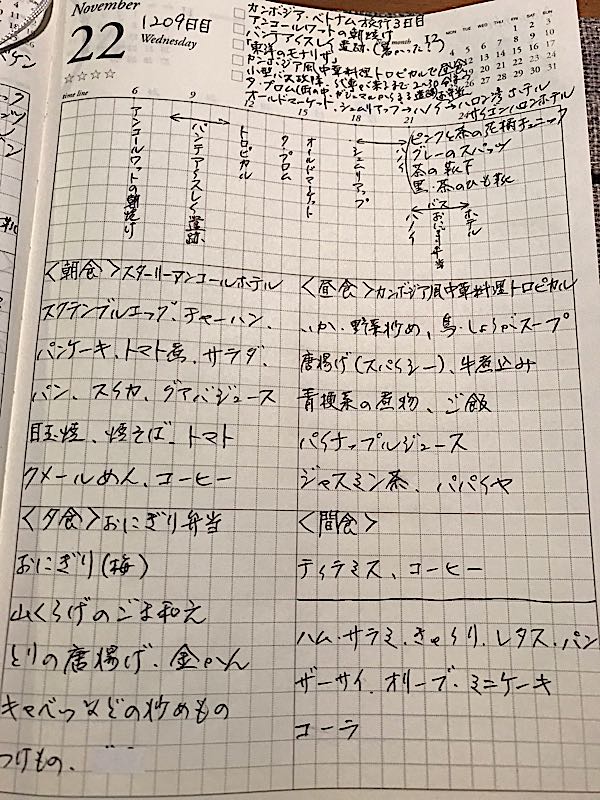 November
22
Wednesday
1209日目
カンボジア・ベトナム旅行3日目
アンコールワットの朝焼け
バンテアイスレイ遺跡.(暑かった!?)
「東洋のモナリザ」
カンボジア風中華料理トロピカルで昼食
小型バス故障
タ・プローム
オールドマーケット、シェムリアップ→ハノイ→ハロン湾ホテル
サイゴンハロンホテル
month 12
MON TUE WED THU FRI SAT SUN
1 2 3
4 5 6 7 8 9 10
☆☆☆☆
time line
6
9
12
15
18
21
24
アンコールワットの朝焼け
バンテアイスレイ遺跡、
トロピカル
タプロム
オールドマーケット
シェムリアップ
ハノイ
ピンクと茶の花柄チュニック
グレーのスパッツ
茶の靴下
黒・茶のひも靴
ハノイ
バス
おにぎり弁当
ホテル
<朝食>スターリーアンコールホテル
スクランブルエッグ、チャーハン、
パンケーキ、トマト煮、サラダ、
パン、スイカ、グアバジュース
目玉焼、焼そば、トマト
クメールめん、コーヒー
<昼食>カンボジア風中華料理トロピカル
いか・野菜炒め、鳥・しょうがスープ
唐揚げ(スパイシー)、牛煮込み
青梗菜の煮物、ご飯
パイナップルジュース
ジャスミン茶、パパイヤ
<夕食>おにぎり弁当
おにぎり(梅)
山くらげのごま和え
とりの唐揚げ、金かん
キャベツなどの炒めもの
つけもの、
<間食>
ティラミス、コーヒー
ハム・サラミ、きゅうり、レタス・パン
ザーサイ、オリーブ・ミニケーキ
コーラ